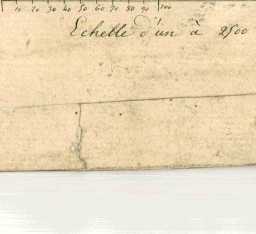 10 20 30 40 50 60 70 80 90 100
Echelle d'un à 2500